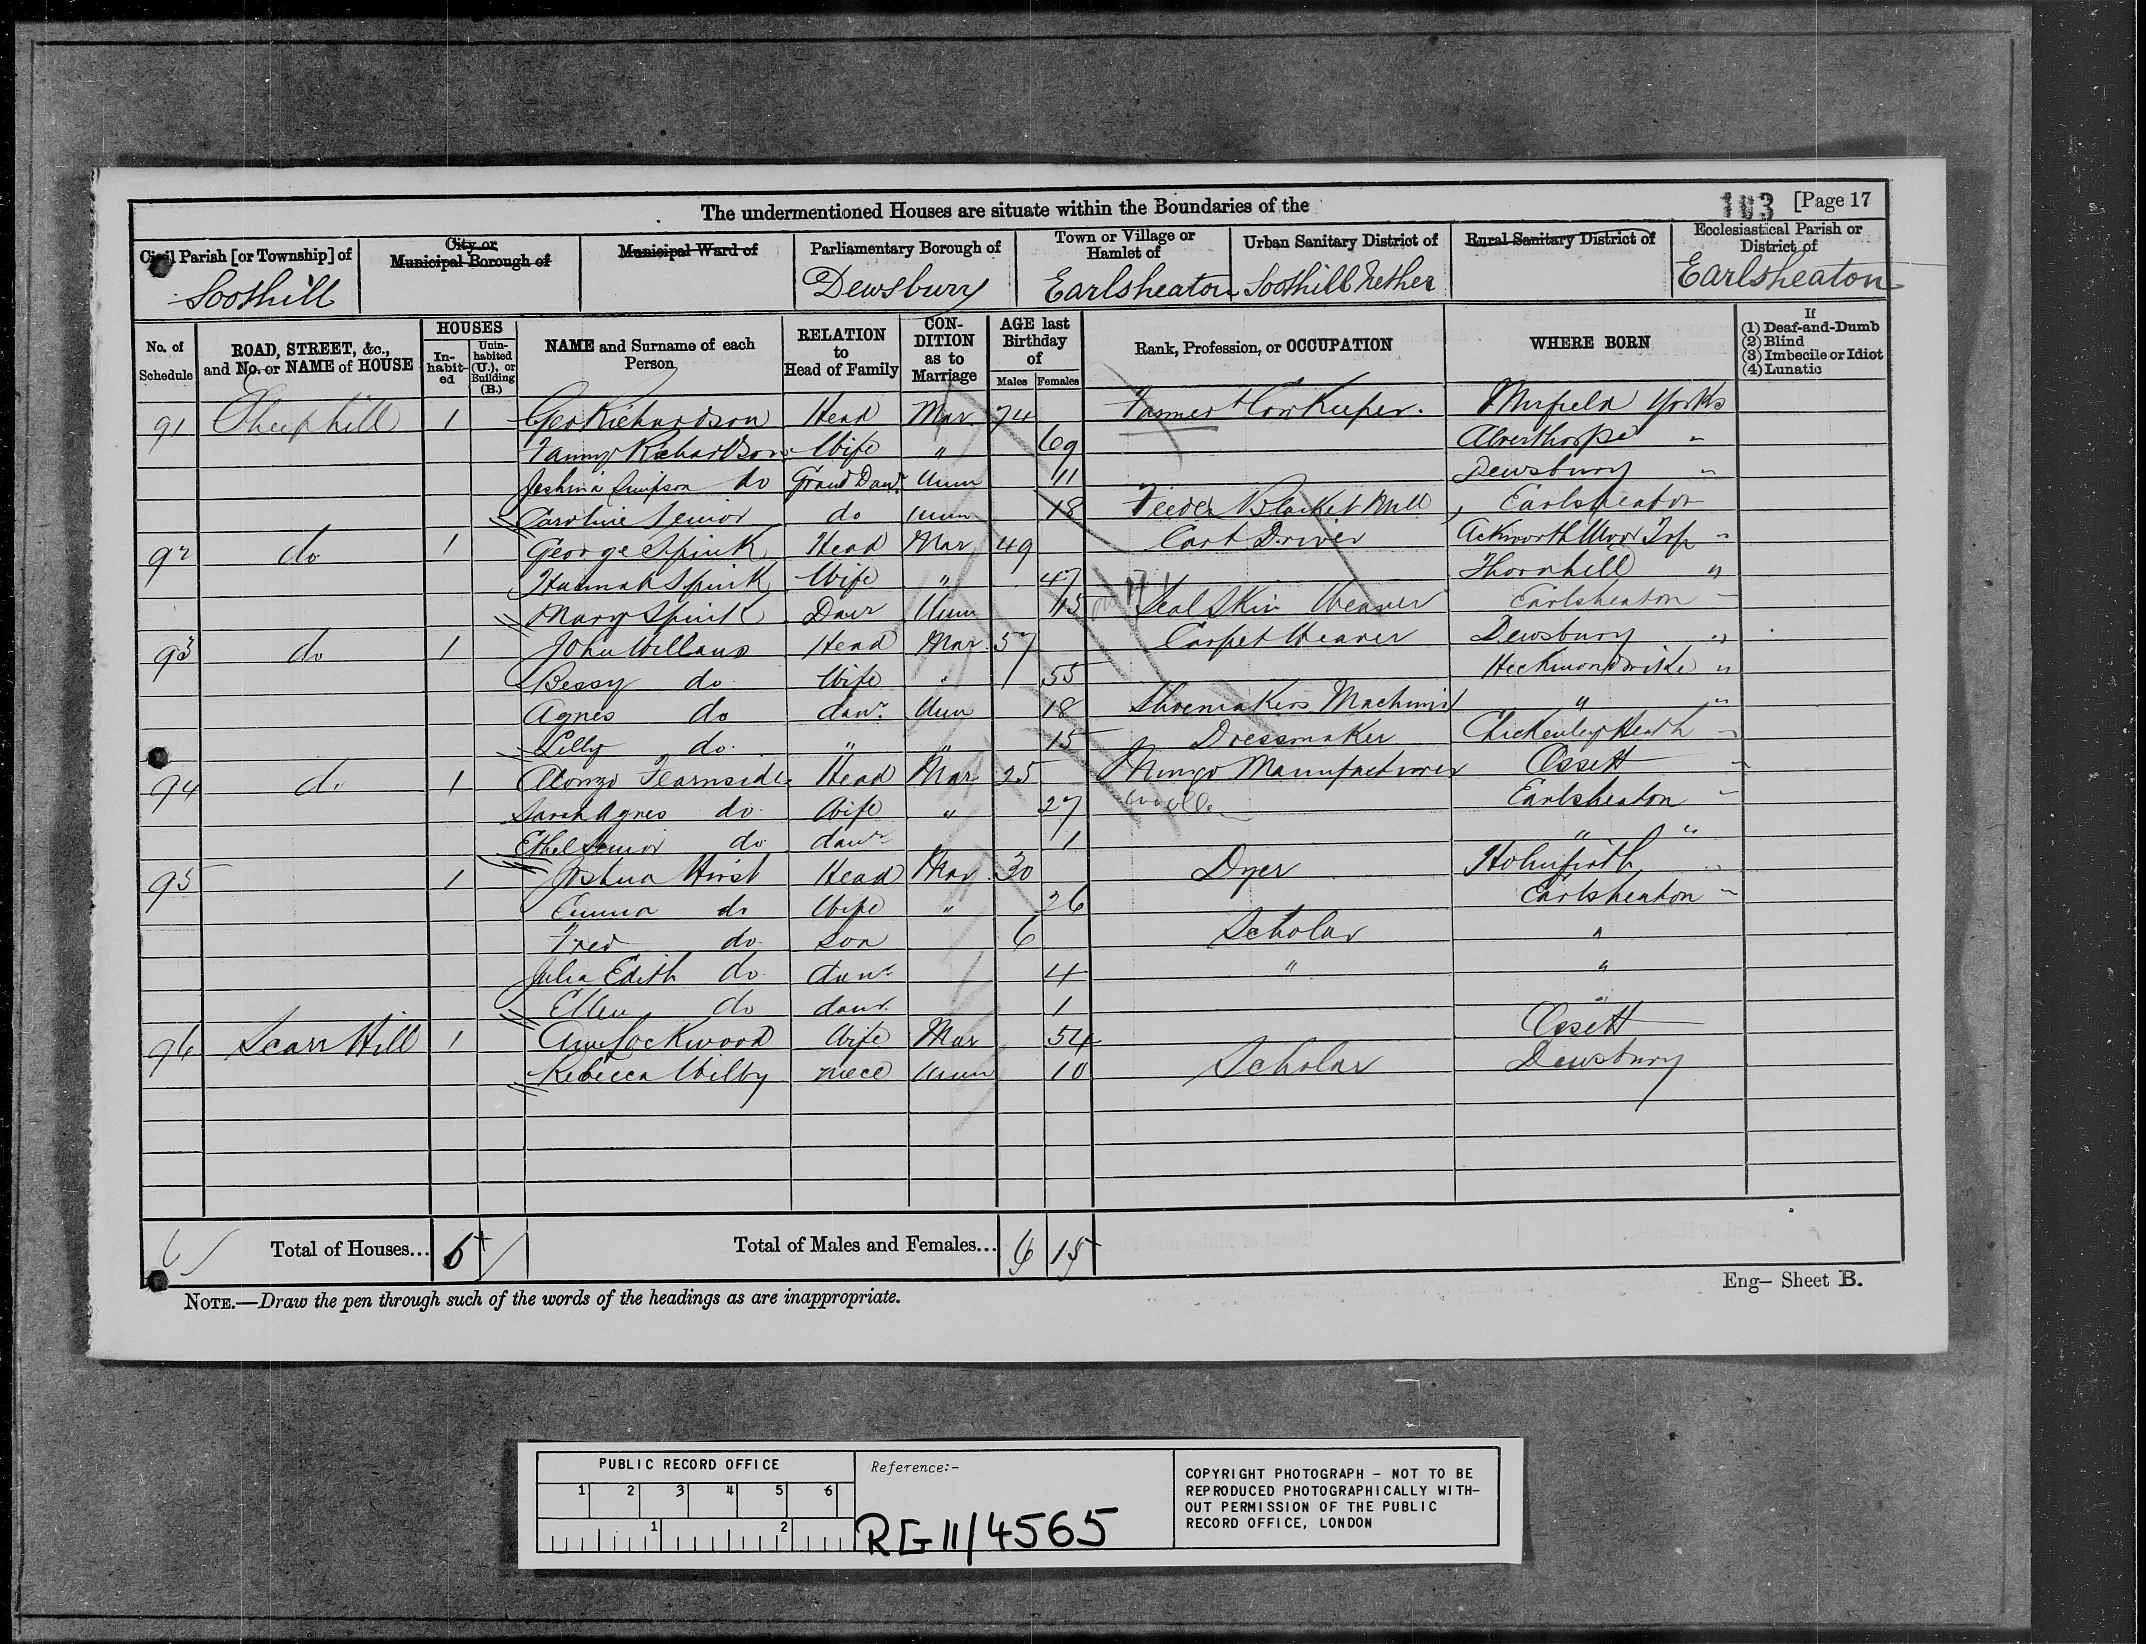 The undermentioned Houses are situate within the Boundaries of the 103 [Page 17
Civil Parish [or Township] of City or Municipal Borough of Municipal Ward of Parliamentary Borough of Town or Village or Hamlet of Urban Sanitary District of Rural Sanitary District of Ecclesiastical Parish or District of
Soothill Dewsbury Earlsheaton Soothill Nether Earlsheaton
No. of Schedule ROAD, STREET, &c., and No. or NAME of HOUSE HOUSES Inhabited Uninhabited (U.), or Building (B.) NAME and Surname of each Person RELATION to Head of Family CONDITION as to Marriage AGE last Birthday of Males Females Rank, Profession, or OCCUPATION WHERE BORN If (1) Deaf-and-Dumb (2) Blind (3) Imbecile or Idiot (4) Lunatic
91 Sheephill 1 Geo Richardson Head Mar 74 Farmer & Cow Keeper. Mirfield Yorks
Fanny Richardson Wife " 69 Alverthorpe "
Simpson do Grand Daur Unm 11 Dewsbury "
Caroline Senior do Unm 18 Feeder Blanket Mill Earlsheaton
92 do 1 George Spink Head Mar 49 Cart Driver Ackworth Moor Top "
Hannah Spink Wife " 47 Thornhill "
Mary Spink Daur Unm 15 Seal Skin Weaver Earlsheaton "
93 do 1 John Willans Head Mar 57 Carpet Weaver Dewsbury "
Bessy do Wife " 55 Heckmondwike "
Agnes do daur. Unm 18 Shoemakers Machinist " "
Lilly do. " " 15 Dressmaker Chickenley Heath "
94 do 1 Alonzo Fearnside Head Mar 25 Mungo Manufacturer Ossett "
Sarah Agnes do. Wife " 27 Woollen Earlsheaton "
Ethel Senior do daur 1 " "
95 1 Joshua Hirst Head Mar 30 Dyer Holmfirth "
Emma do Wife " 26 Earlsheaton "
Fred do. Son 6 Scholar "
Julia Edith do. daur. 4 " "
Ellen do daur. 1 "
96 Scarr Hill 1 Ann Lockwood Wife Mar 54 Ossett
Rebecca Wilby niece Unm 10 Scholar Dewsbury
6 Total of Houses... 6 Total of Males and Females... 6 15
Eng— Sheet B.
NOTE.—Draw the pen through such of the words of the headings as are inappropriate.
PUBLIC RECORD OFFICE
1 2 3 4 5 6
1 2
Reference:-
RG 11/4565
COPYRIGHT PHOTOGRAPH - NOT TO BE
REPRODUCED PHOTOGRAPHICALLY WITH-
OUT PERMISSION OF THE PUBLIC
RECORD OFFICE, LONDON